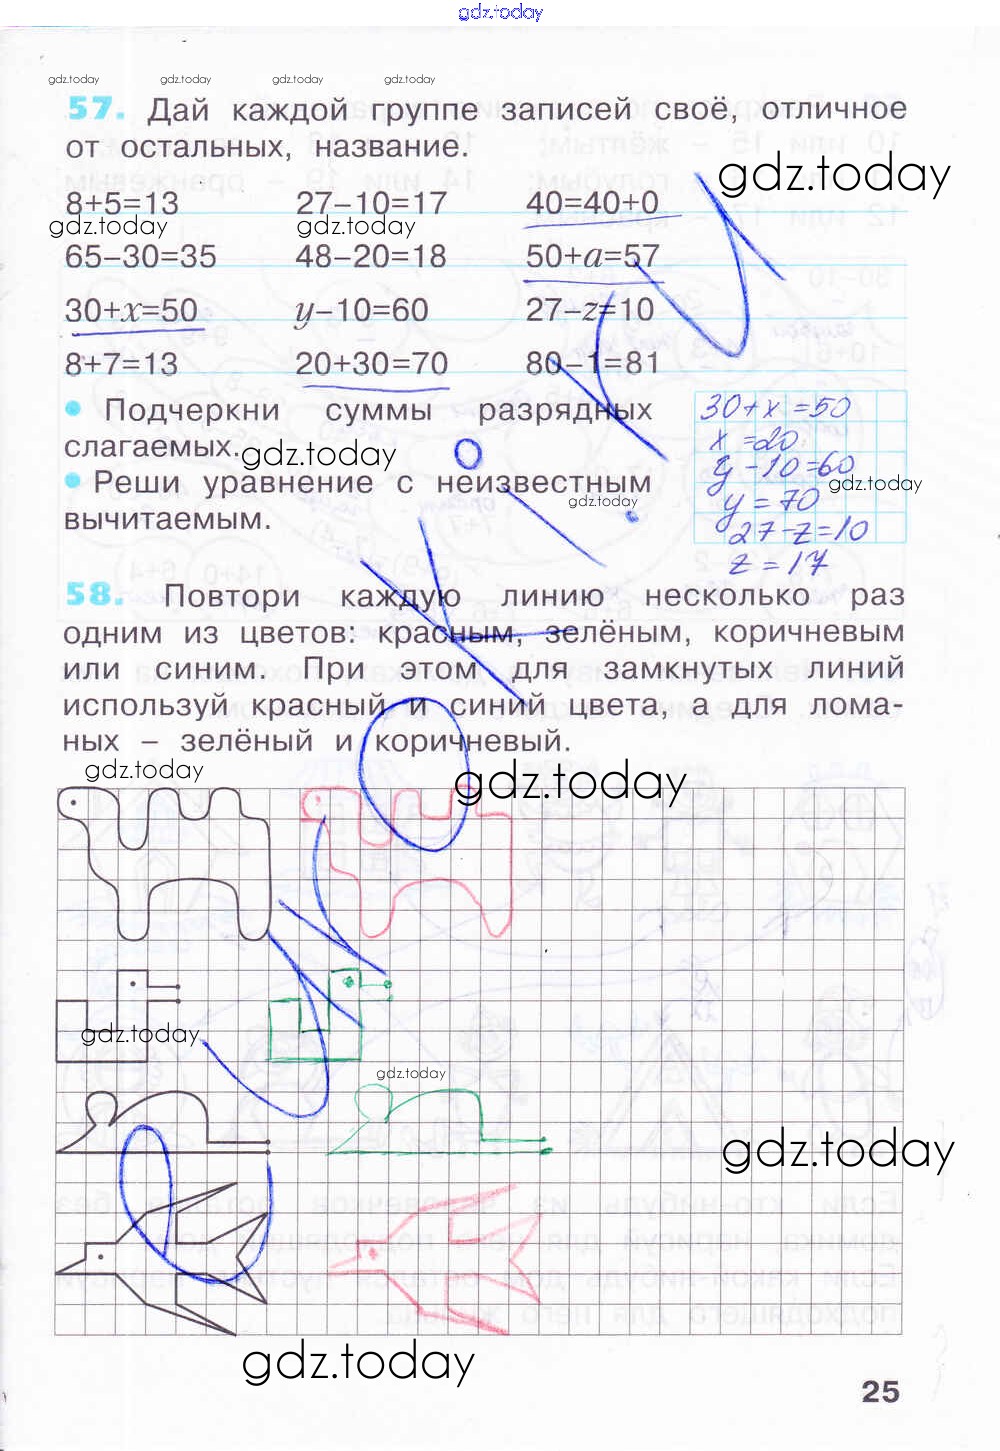 gdz.today
gdz.today gdz.today gdz.today gdz.today
57. Дай каждой группе записей своё, отличное
от остальных, название.
gdz.today
8+5=13 27−10=17 40=40+0
gdz.today gdz.today
65−30=35 48−20=18 50+a=57
30+x=50 y−10=60 27−z=10
8+7=13 20+30=70 80−1=81
• Подчеркни суммы разрядных
слагаемых.
gdz.today
• Реши уравнение с неизвестным
вычитаемым.
gdz.today
30+x=50
x=20
y−10=60
gdz.today
y=70
27−z=10
z=17
58. Повтори каждую линию несколько раз
одним из цветов: красным, зелёным, коричневым
или синим. При этом для замкнутых линий
используй красный и синий цвета, а для лома-
ных – зелёный и коричневый.
gdz.today gdz.today
gdz.today
gdz.today
gdz.today
gdz.today
25